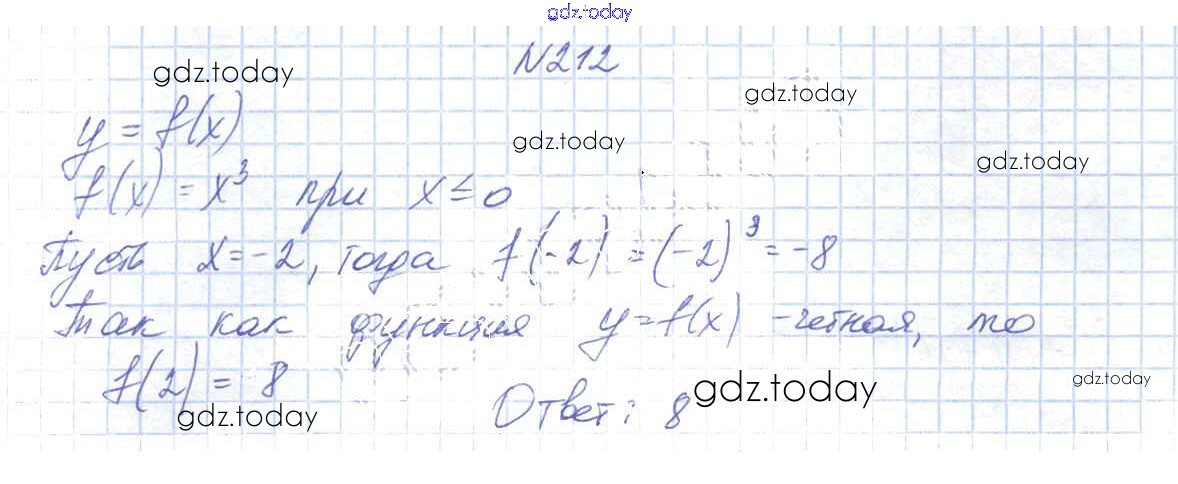 gdz.today
N212
gdz.today
gdz.today
y = f(x)
gdz.today
gdz.today
f(x) = x³ при x ≤ 0
Пусть x = -2, тогда f(-2) = (-2)³ = -8
Так как функция y = f(x) - четная, то
f(2) = 8
gdz.today
gdz.today
gdz.today
Ответ: 8